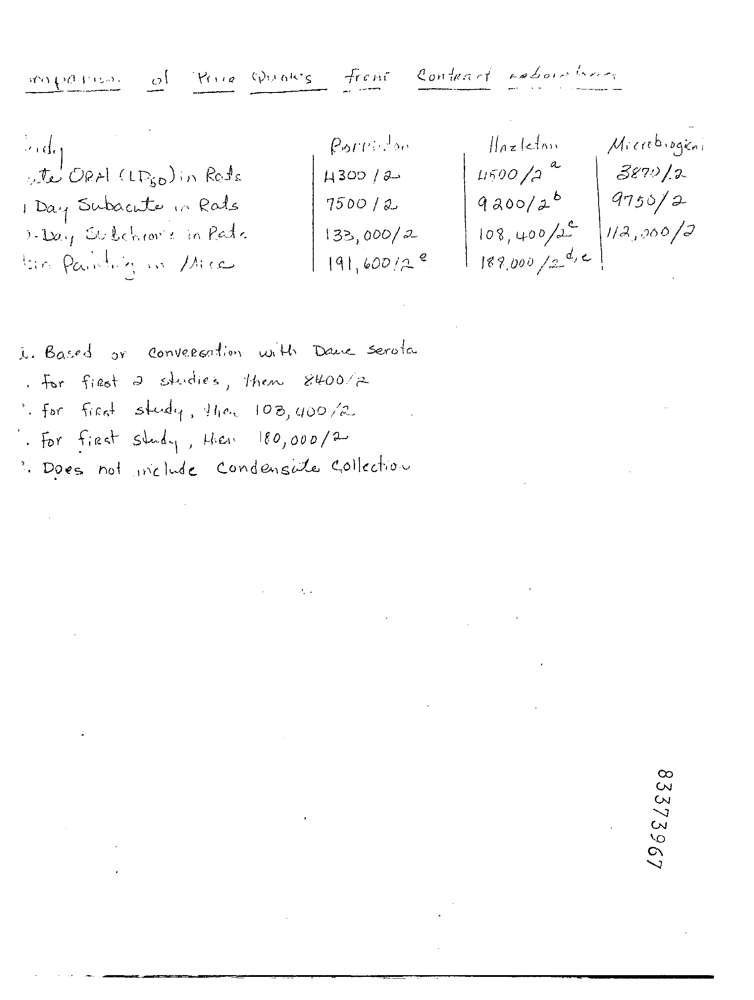 of Price Quotes from Contract
Hazleton Microbiological
ORAL (LD50) in Rats 4300/2 4500/2 a 3870/2
Day Subacute in Rats 7500/2 9200/2 b 9750/2
Day Subchronic in Rats 133,000/2 108,400/2 c 112,000/2
Painting in Mice 191,600/2 e 189,000/2 d,e
. Based on conversation with Dave Serota
. For first 2 studies, then 8400/2
. For first study, then 103,400/2
. For first study, then 180,000/2
. Does not include Condensate Collection
83373967